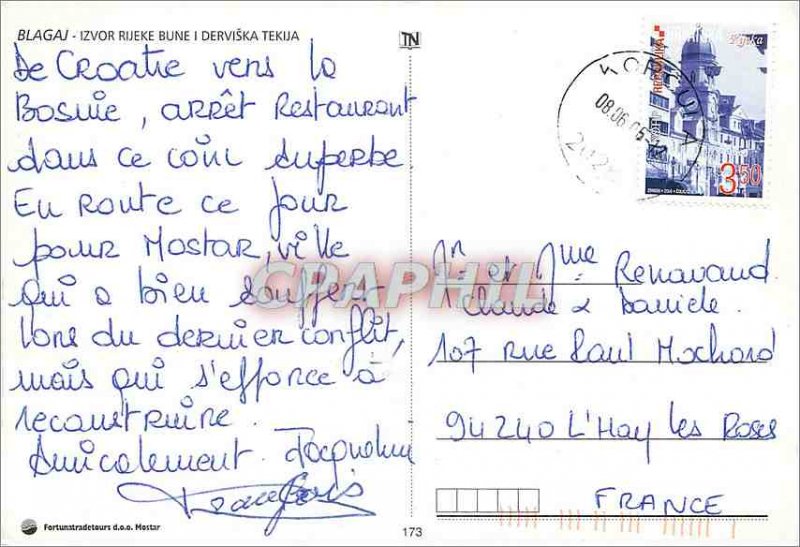 BLAGAJ - IZVOR RIJEKE BUNE I DERVIŠKA TEKIJA
TN
De Croatie vers la
Bosnie, arrêt Restaurant
dans ce coin superbe.
En Route ce jour
pour Mostar, ville
qui a bien souffert
lors du dernier conflit,
mais qui s'efforce à
reconstruire.
Amicalement. Jacqueline
François
Fortunatradetours d.o.o. Mostar
173
KORČULA
08.06.06
REPUBLIKA
Rijeka
3.50
Mr et Mme Renavand
Claude & Daniele.
107 Rue Paul Hochard
94240 L'Hay les Roses
FRANCE
CPAPHIL